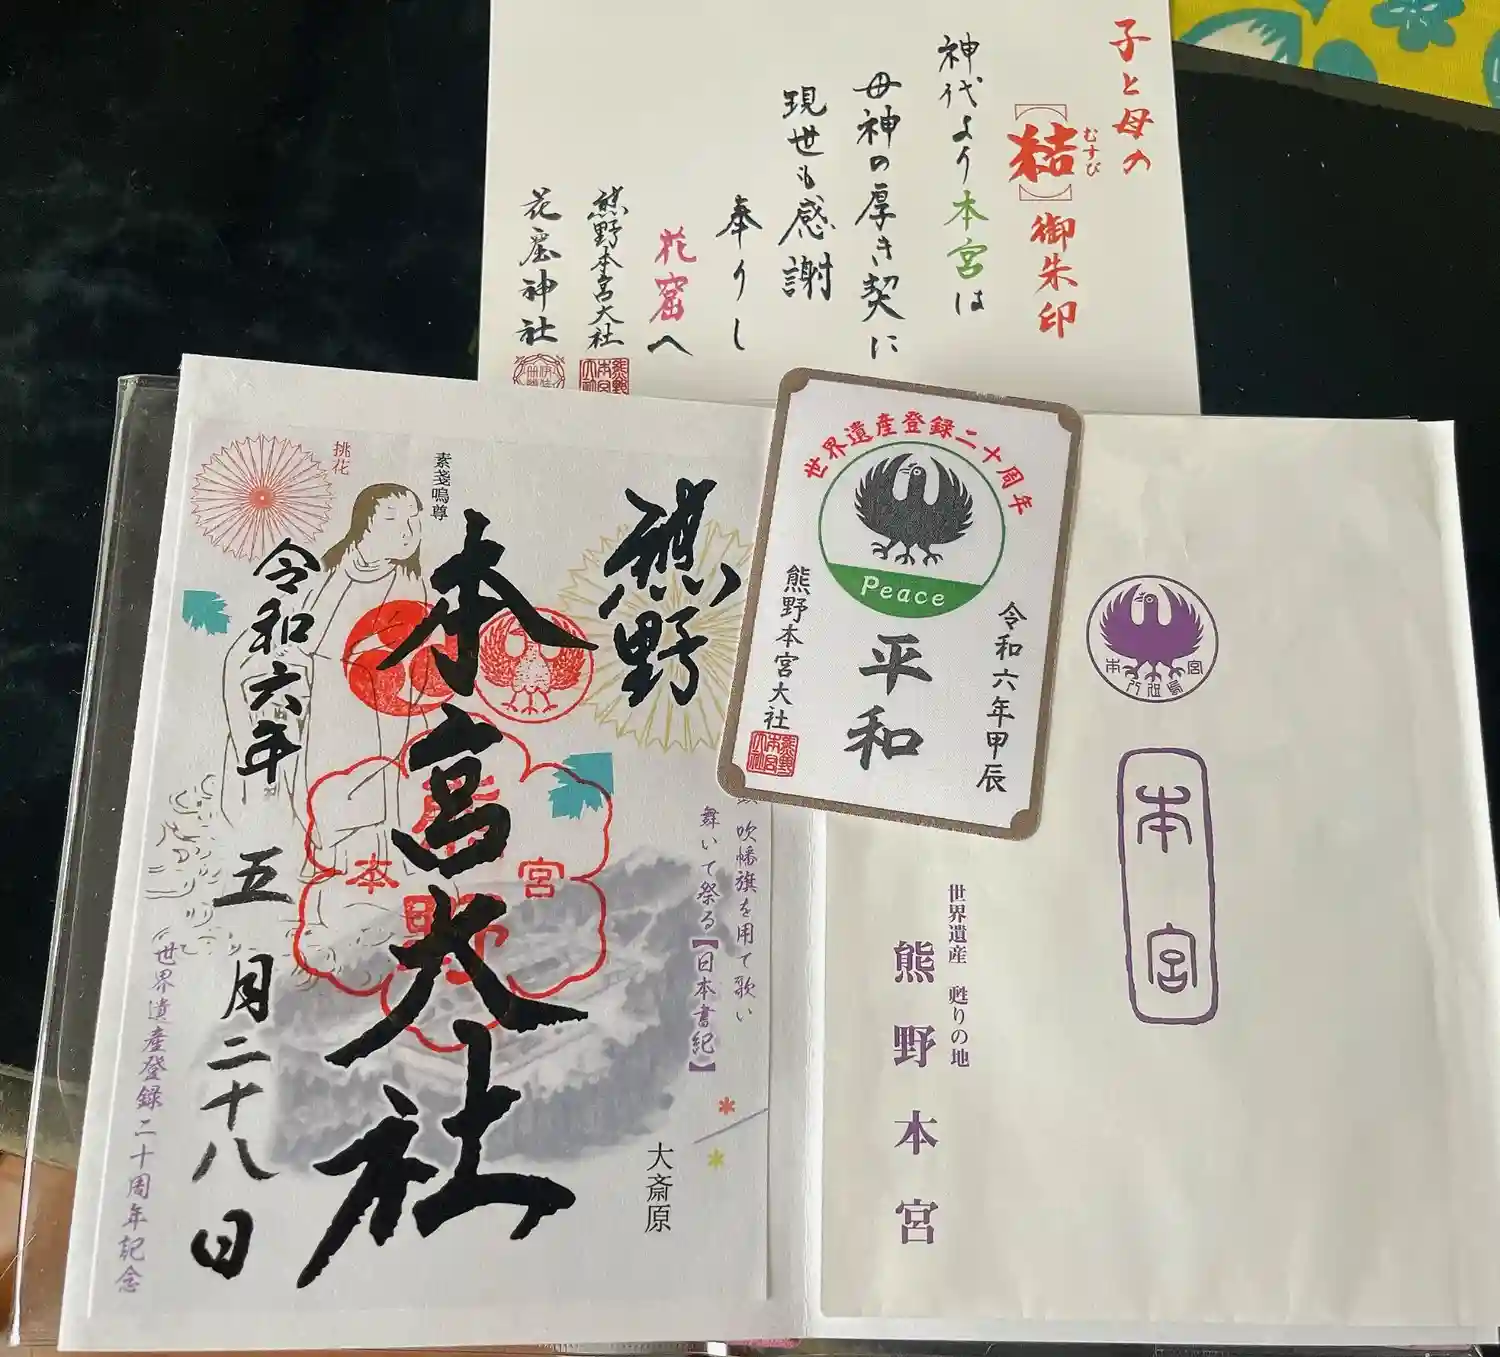 子と母の
【結】御朱印
むすび
神代より本宮は
母神の厚き契に
現世も感謝
奉りし
花窟へ
熊野本宮大社
花窟神社
挑花
素戔嗚尊
熊野
本宮大社
令和六年
五月二十八日
本
宮
吹幡旗を用て歌い
舞いて祭る【日本書紀】
世界遺産登録二十周年記念
大斎原
世界遺産登録二十周年
Peace
平和
令和六年甲辰
熊野本宮大社
熊野本宮大社
本宮
世界遺産 甦りの地
熊野本宮